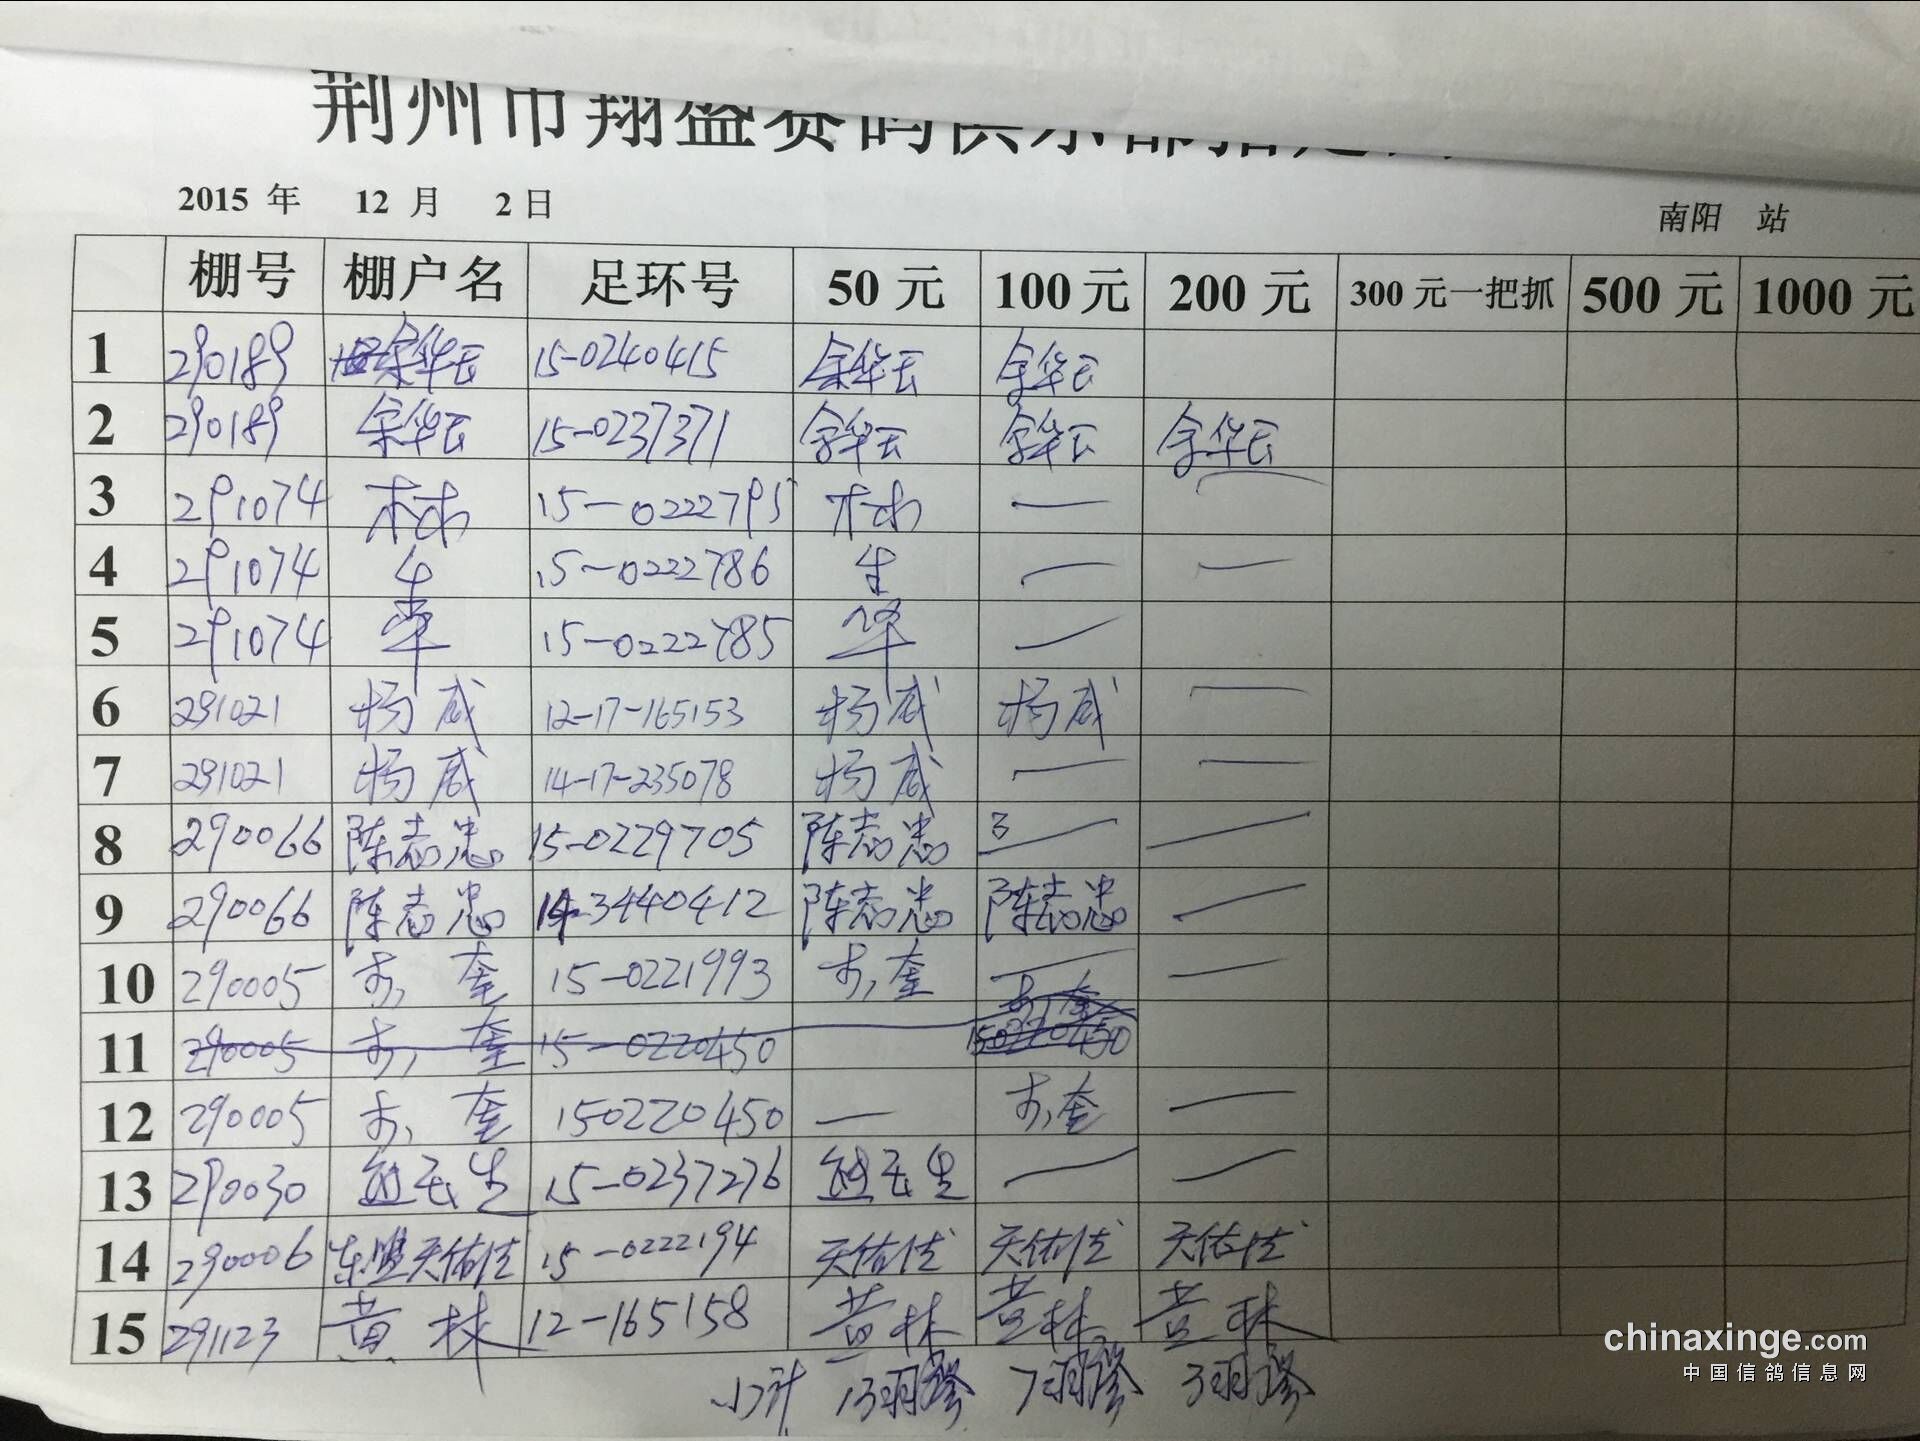 荆州市翔盛赛鸽俱乐部指定
2015 年 12 月 2 日 南阳 站
棚号 棚户名 足环号 50 元 100 元 200 元 300 元一把抓 500 元 1000 元
1 290189 余华云 15-0240415 余华云 余华云
2 290189 余华云 15-0237371 余华云 余华云 余华云
3 291074 林 15-0222795 林 —
4 291074 生 15-0222786 生 — —
5 291074 华 15-0222785 华 —
6 291021 杨威 12-17-165153 杨威 杨威 —
7 291021 杨威 14-17-235078 杨威 — —
8 290066 陈志忠 15-0229705 陈志忠 — —
9 290066 陈志忠 14-3440412 陈志忠 陈志忠 —
10 290005 奎 15-0221993 奎 — —
11 290005 奎 15-0220450 奎 150220450
12 290005 奎 150220450 — 奎 —
13 290030 生 15-0237276 — —
14 290006 东盟天佑佳 15-0222194 天佑佳 天佑佳 天佑佳
15 291123 黄林 12-165158 黄林 黄林 黄林
小计 13羽 7羽 3羽
chinaxinge.com
中国信鸽信息网